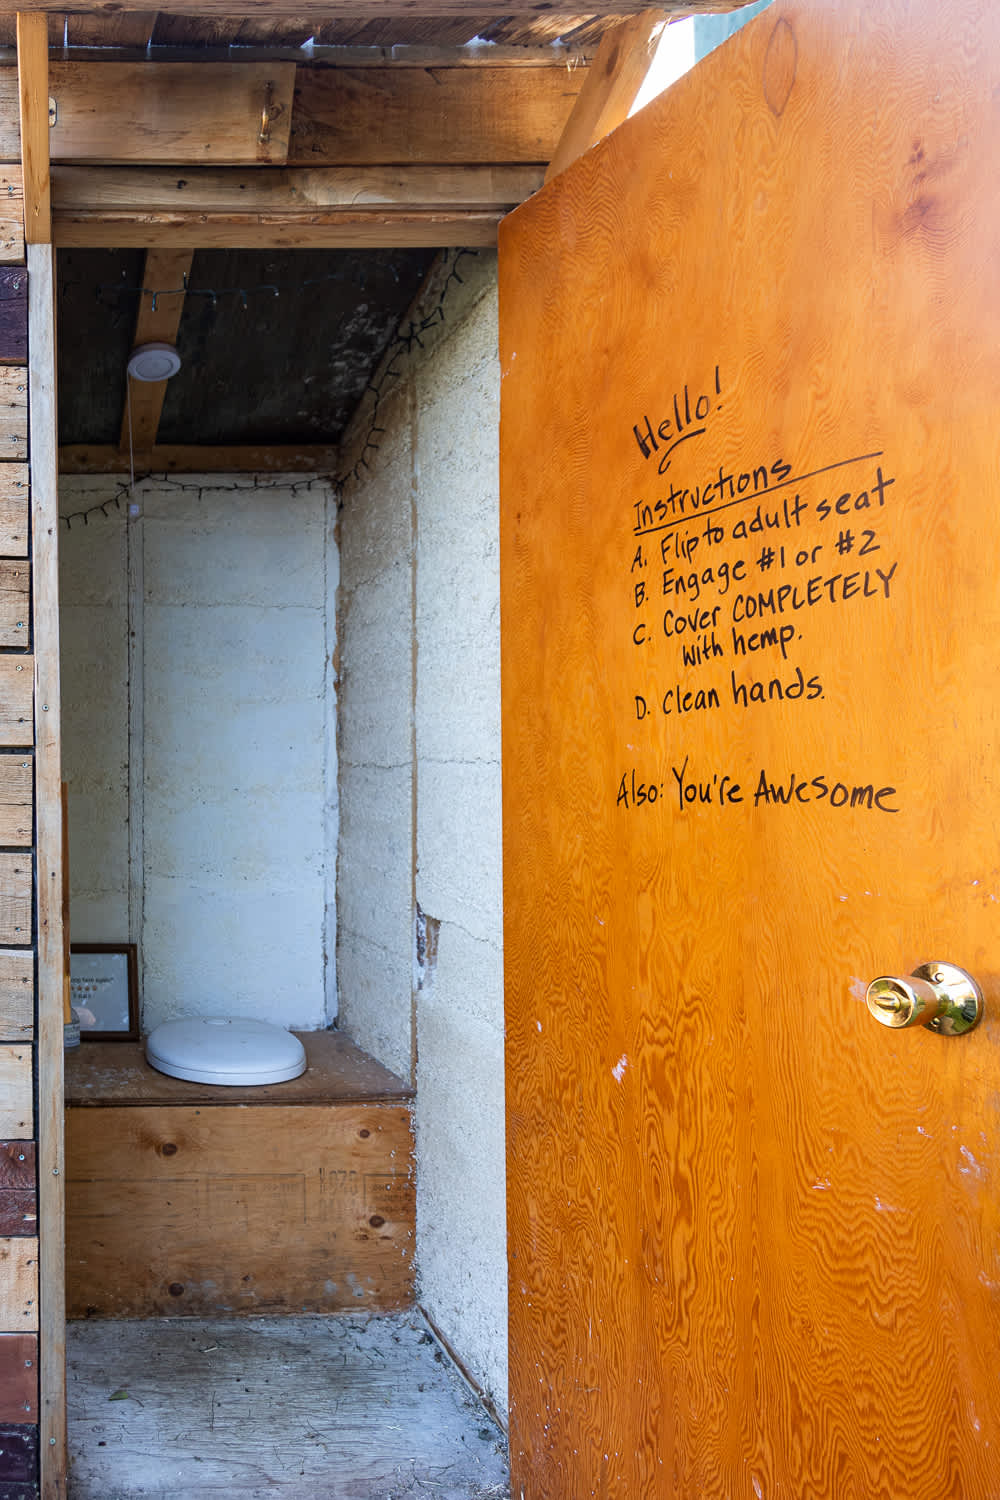 Hello!
Instructions
A. Flip to adult seat
B. Engage #1 or #2
C. Cover COMPLETELY
with hemp.
D. Clean hands.
Also: You're Awesome